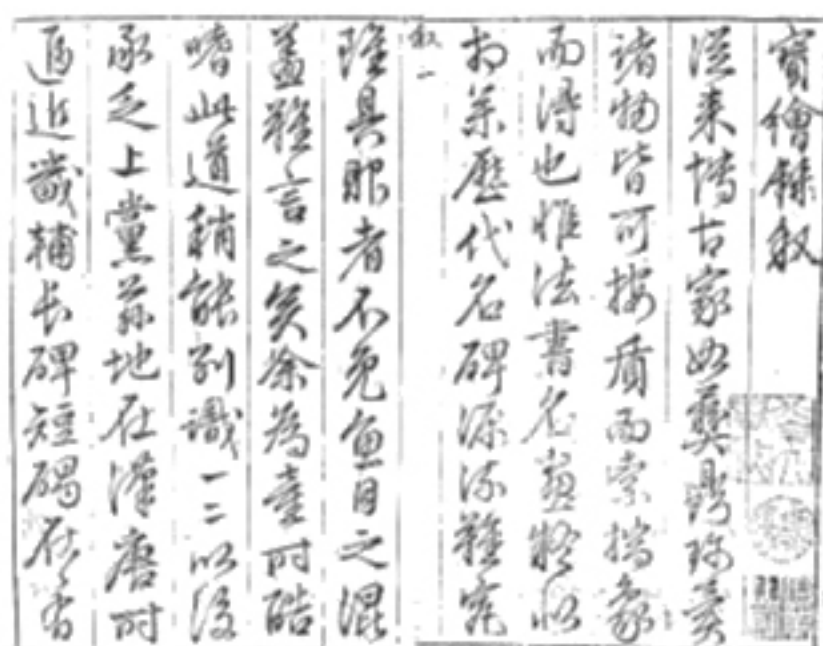 寶繪錄敘
從来博古家如彝鼎珎異
諸物皆可按盾而索揣象
而得也惟法書名畫
歷代名碑源流難究
敘一
雖具眼者不免魚目之混
蓋難言之矣余為童时酷
嗜此道稍能別識一二以後
承乏上黨茲地在漢唐时
逼近畿輔长碑短碣在在